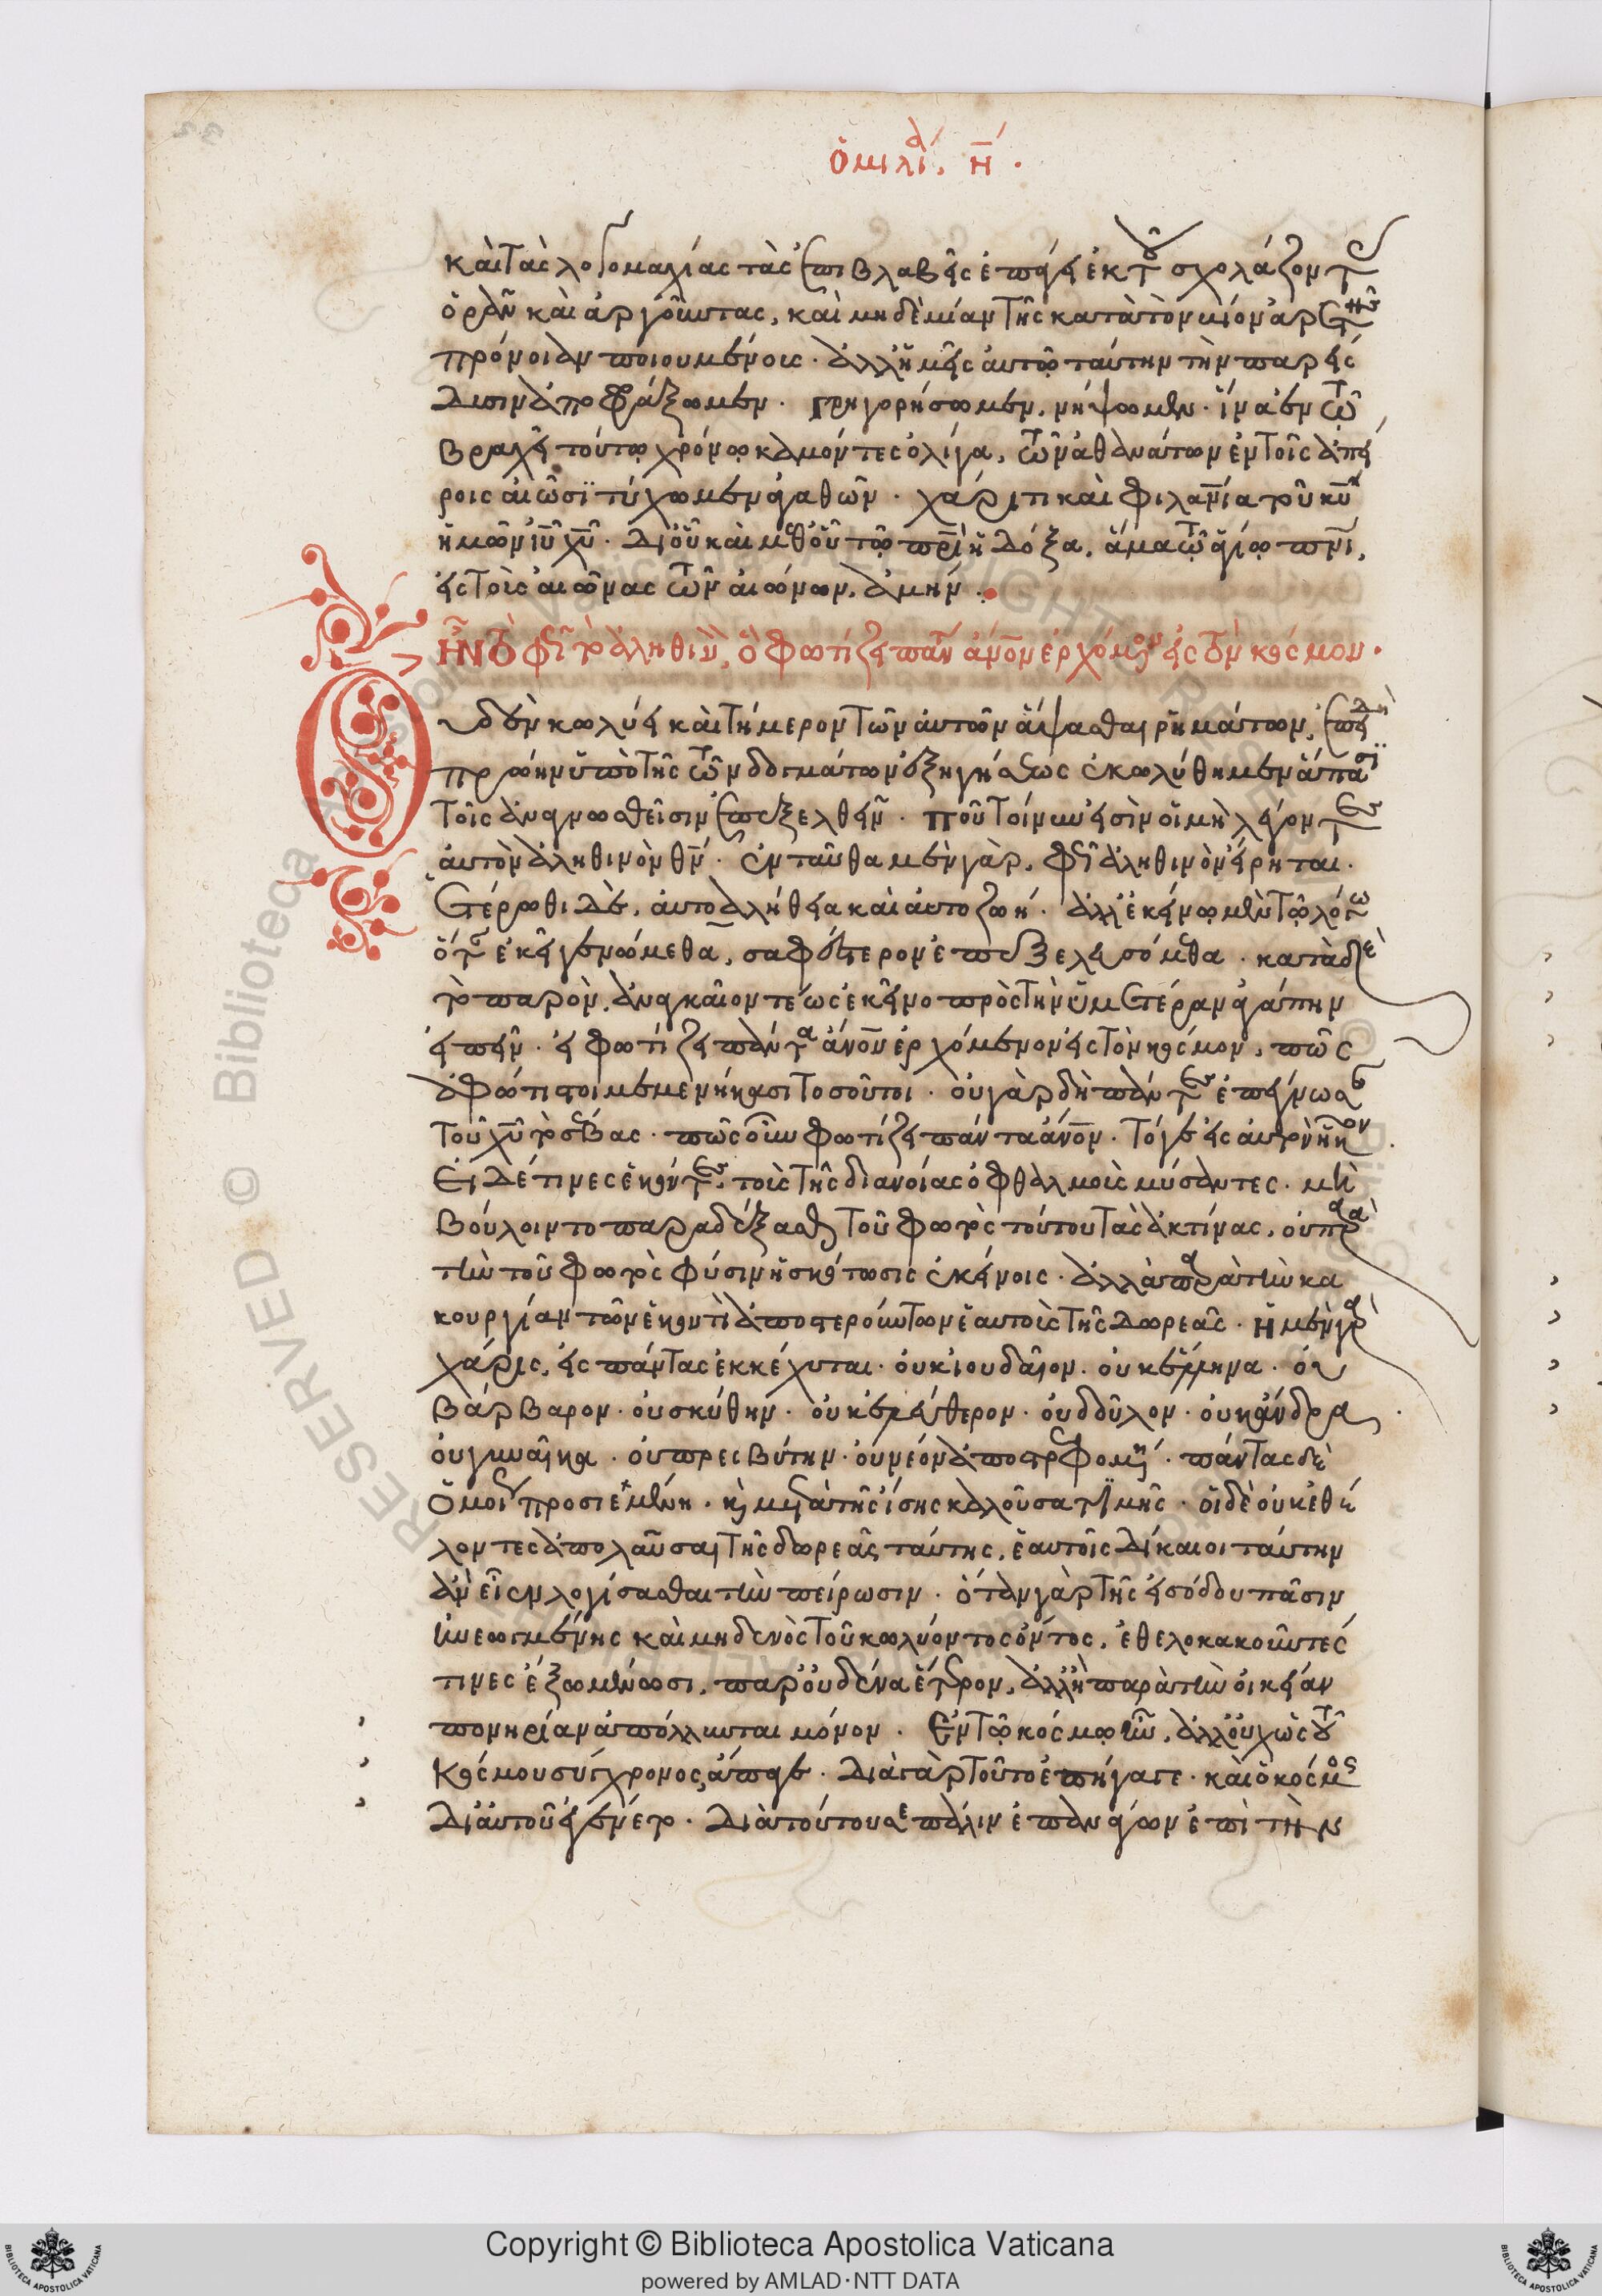 ὁμιλία η.
καὶ τὰς λογομαχίας τὰς ἐπιβλαβεῖς ἐπάγει ἐκ τοῦ σχολάζοντας
ὁρᾶν καὶ ἀργοῦντας, καὶ μηδεμίαν τῆς κατὰ τὸν βίον ἀρετῆς
πρόνοιαν ποιουμένοις. ἀλλ' ἡμεῖς αὐτῷ ταύτην τὴν παρείσ
δυσιν ἀποφράξωμεν. γρηγορήσωμεν, νήψωμεν. ἵνα ἐν τῷ
βραχεῖ τούτῳ χρόνῳ καμόντες ὀλίγα, τῶν ἀθανάτων ἐν τοῖς ἀπεί
ροις αἰῶσϊ τύχωμεν ἀγαθῶν. χάριτι καὶ φιλανίᾳ τοῦ κυ
ἡμῶν ιυ χυ. δι' οὗ καὶ μεθ' οὗ τῷ πρὶ ἡ δόξα, ἅμα τῷ ἁγίῳ πνι,
εἰς τοὺς αἰῶνας τῶν αἰώνων, ἀμήν.
Ἦν τὸ φῶς τὸ ἀληθινὸν, ὃ φωτίζει πάντα ἀνον ἐρχόμενον εἰς τὸν κόσμον.
Οὐδὲν κωλύει καὶ τήμερον τῶν αὐτῶν ἅψασθαι ῥημάτων, ἐπειδὴ
πρώην ὑπὸ τῆς τῶν δογμάτων ἐξηγήσεως ἐκωλύθημεν ἅπασϊ
τοῖς ἀναγνωσθεῖσιν ἐπεξελθεῖν. ποῦ τοίνυν εἰσὶν οἱ μὴ λέγοντες
αὐτὸν ἀληθινὸν θν. ἐνταῦθα μὲν γὰρ, φῶς ἀληθινὸν εἴρηται.
ἑτέρωθι δὲ, αὐτοαλήθεια καὶ αὐτοζωή. ἀλλ' ἐκείνῳ μὲν τῷ λόγῳ
ὅταν ἐκεῖ γενώμεθα, σαφέστερον ἐπεξελευσόμεθα. κατὰ δὲ
τὸ παρὸν, ἀναγκαῖον τέως ἐκεῖνο πρὸς τὴν ὑμετέραν ἀγάπην
εἰπεῖν. εἰ φωτίζει πάντα ἀνον ἐρχόμενον εἰς τὸν κόσμον, πῶς
ἀφώτιστοι μεμενήκασι τοσοῦτοι. οὐ γὰρ δὴ πάντες ἐπέγνωσαν
τοῦ χυ τὸ σέβας. πῶς οὖν φωτίζει πάντα ἀνον. τό γε εἰς αὐτὸν ἧκον.
Εἰ δέ τινες ἑκόντες, τοὺς τῆς διανοίας ὀφθαλμοὺς μύσαντες, μὴ
βούλοιντο παραδέξασθαι τοῦ φωτὸς τούτου τὰς ἀκτίνας, οὐ παρὰ
τὴν τοῦ φωτὸς φύσιν ἡ σκότωσις ἐκείνοις. ἀλλὰ παρὰ τὴν κα
κουργίαν τῶν ἑκοντὶ ἀποστερούντων ἑαυτοὺς τῆς δωρεᾶς. ἡ μὲν γὰρ
χάρις, εἰς πάντας ἐκκέχυται. οὐκ ἰουδαῖον. οὐχ ἕλληνα. οὐ
βάρβαρον. οὐ σκύθην. οὐκ ἐλεύθερον. οὐ δοῦλον. οὐκ ἄνδρα,
οὐ γυναῖκα. οὐ πρεσβύτην. οὐ νέον ἀποστρεφομένη. πάντας δὲ
ὁμοίως προσιεμένη. καὶ μετὰ τῆς ἴσης καλοῦσα τιμῆς. οἱ δὲ οὐκ ἐθέ
λοντες ἀπολαῦσαι τῆς δωρεᾶς ταύτης, ἑαυτοῖς δίκαιοι ταύτην
ἂν εἶεν λογίσασθαι τὴν πείρωσιν. ὅταν γὰρ τῆς εἰσόδου πᾶσιν
ἠνεωγμένης καὶ μηδενὸς τοῦ κωλύοντος ὄντος, ἐθελοκακοῦντές
τινες ἔξω μένωσι, παρ' οὐδένα ἕτερον, ἀλλ' ἢ παρὰ τὴν οἰκείαν
πονηρίαν ἀπόλλυνται μόνον. Ἐν τῷ κόσμῳ ἦν, ἀλλ' οὐχ ὡς τοῦ
κόσμου σύγχρονος, ἄπαγε. διὰ γὰρ τοῦτο ἐπήγαγε. καὶ ὁ κόσμος
δι' αὐτοῦ ἐγένετο. διὰ τούτου σε πάλιν ἐπανάγων ἐπὶ τὴν
Copyright © Biblioteca Apostolica Vaticana
powered by AMLAD·NTT DATA